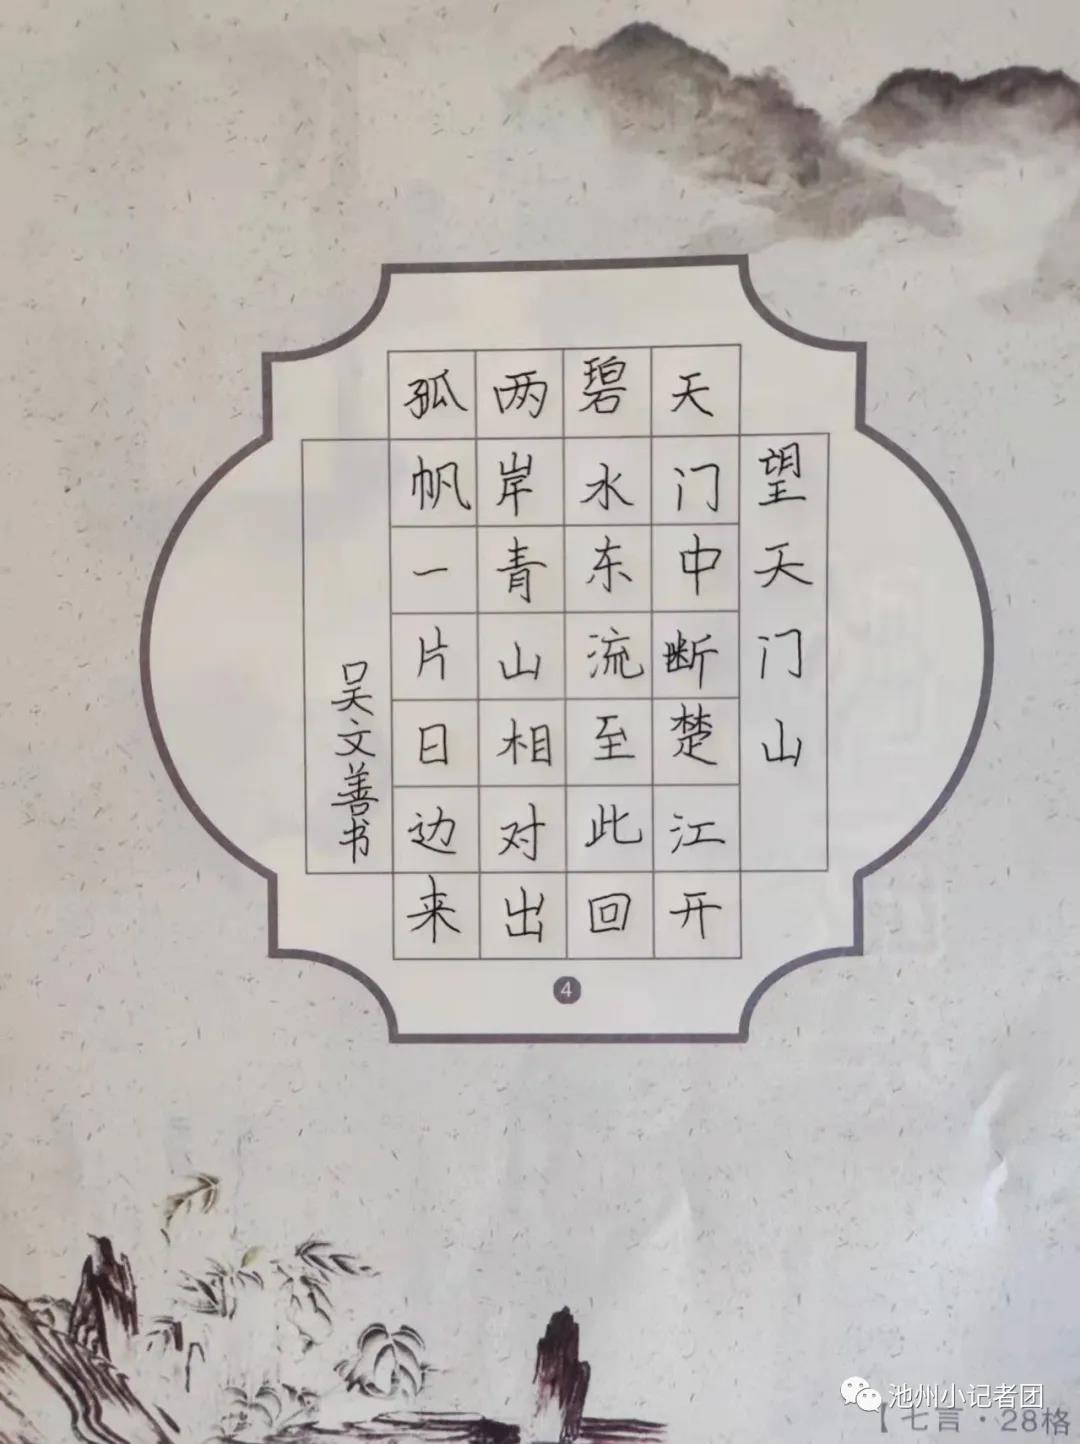 望天门山
天门中断楚江开
碧水东流至此回
两岸青山相对出
孤帆一片日边来
吴文善书
4
池州小记者团
【七言·28格